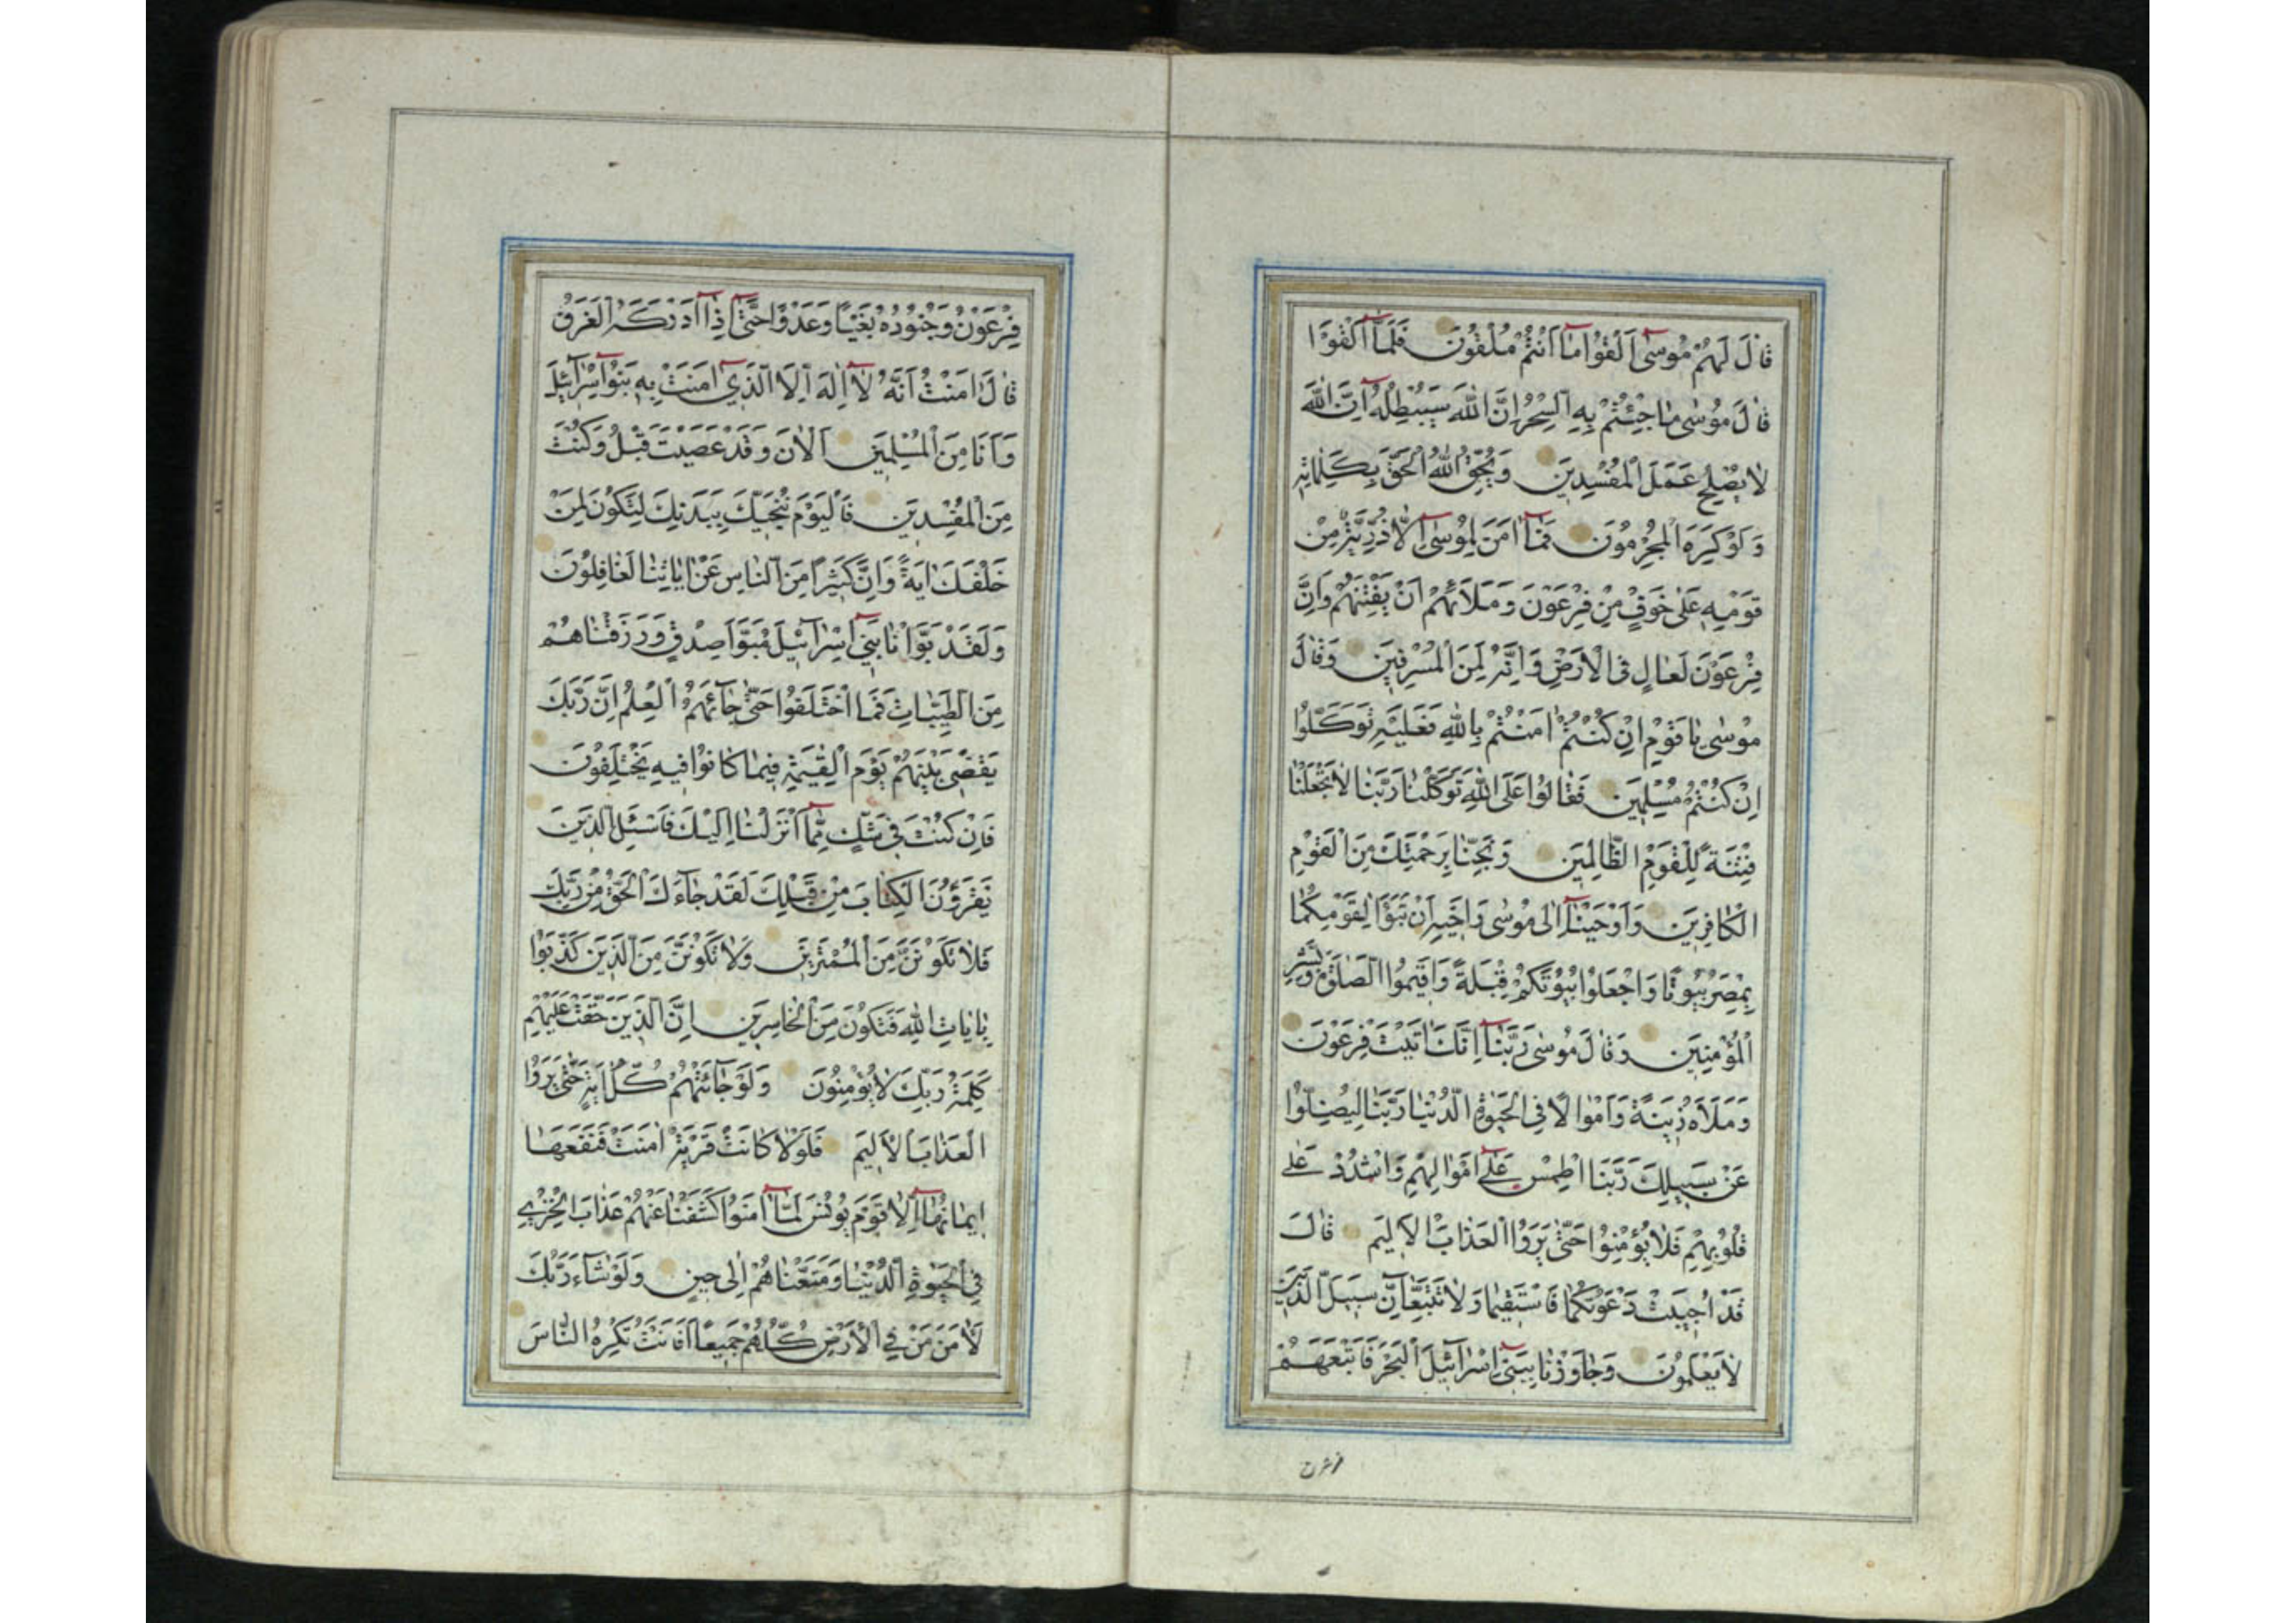 قَالَ لَهُمْ مُوسٰىٓ اَلْقُوا مَآ اَنْتُمْ مُلْقُونَ فَلَمَّآ اَلْقَوْا
قَالَ مُوسٰى مَا جِئْتُمْ بِهِ السِّحْرُ اِنَّ اللّٰهَ سَيُبْطِلُهُٓ اِنَّ اللّٰهَ
لَا يُصْلِحُ عَمَلَ الْمُفْسِدِينَ وَيُحِقُّ اللّٰهُ الْحَقَّ بِكَلِمَاتِهِ
وَلَوْ كَرِهَ الْمُجْرِمُونَ فَمَآ اٰمَنَ لِمُوسٰىٓ اِلَّا ذُرِّيَّةٌ مِنْ
قَوْمِهِ عَلٰى خَوْفٍ مِنْ فِرْعَوْنَ وَمَلَائِهِمْ اَنْ يَفْتِنَهُمْ وَاِنَّ
فِرْعَوْنَ لَعَالٍ فِى الْاَرْضِ وَاِنَّهُ لَمِنَ الْمُسْرِفِينَ وَقَالَ
مُوسٰى يَا قَوْمِ اِنْ كُنْتُمْ اٰمَنْتُمْ بِاللّٰهِ فَعَلَيْهِ تَوَكَّلُوا
اِنْ كُنْتُمْ مُسْلِمِينَ فَقَالُوا عَلَى اللّٰهِ تَوَكَّلْنَا رَبَّنَا لَا تَجْعَلْنَا
فِتْنَةً لِلْقَوْمِ الظَّالِمِينَ وَنَجِّنَا بِرَحْمَتِكَ مِنَ الْقَوْمِ
الْكَافِرِينَ وَاَوْحَيْنَآ اِلٰى مُوسٰى وَاَخِيهِ اَنْ تَبَوَّاٰ لِقَوْمِكُمَا
بِمِصْرَ بُيُوتًا وَاجْعَلُوا بُيُوتَكُمْ قِبْلَةً وَاَقِيمُوا الصَّلٰوةَ وَبَشِّرِ
الْمُؤْمِنِينَ وَقَالَ مُوسٰى رَبَّنَآ اِنَّكَ اٰتَيْتَ فِرْعَوْنَ
وَمَلَاَهُ زِينَةً وَاَمْوَالًا فِى الْحَيٰوةِ الدُّنْيَا رَبَّنَا لِيُضِلُّوا
عَنْ سَبِيلِكَ رَبَّنَا اطْمِسْ عَلٰٓى اَمْوَالِهِمْ وَاشْدُدْ عَلٰى
قُلُوبِهِمْ فَلَا يُؤْمِنُوا حَتّٰى يَرَوُا الْعَذَابَ الْاَلِيمَ قَالَ
قَدْ اُجِيبَتْ دَعْوَتُكُمَا فَاسْتَقِيمَا وَلَا تَتَّبِعَآنِّ سَبِيلَ الَّذِينَ
لَا يَعْلَمُونَ وَجَاوَزْنَا بِبَنِىٓ اِسْرَآئِيلَ الْبَحْرَ فَاَتْبَعَهُمْ
فرعون
فِرْعَوْنُ وَجُنُودُهُ بَغْيًا وَعَدْوًا حَتّٰىٓ اِذَآ اَدْرَكَهُ الْغَرَقُ
قَالَ اٰمَنْتُ اَنَّهُ لَآ اِلٰهَ اِلَّا الَّذِىٓ اٰمَنَتْ بِهِ بَنُوٓا اِسْرَآئِيلَ
وَاَنَا مِنَ الْمُسْلِمِينَ آلْاٰنَ وَقَدْ عَصَيْتَ قَبْلُ وَكُنْتَ
مِنَ الْمُفْسِدِينَ فَالْيَوْمَ نُنَجِّيكَ بِبَدَنِكَ لِتَكُونَ لِمَنْ
خَلْفَكَ اٰيَةً وَاِنَّ كَثِيرًا مِنَ النَّاسِ عَنْ اٰيَاتِنَا لَغَافِلُونَ
وَلَقَدْ بَوَّاْنَا بَنِىٓ اِسْرَآئِيلَ مُبَوَّاَ صِدْقٍ وَرَزَقْنَاهُمْ
مِنَ الطَّيِّبَاتِ فَمَا اخْتَلَفُوا حَتّٰى جَآئَهُمُ الْعِلْمُ اِنَّ رَبَّكَ
يَقْضِى بَيْنَهُمْ يَوْمَ الْقِيٰمَةِ فِيمَا كَانُوا فِيهِ يَخْتَلِفُونَ
فَاِنْ كُنْتَ فِى شَكٍّ مِمَّآ اَنْزَلْنَا اِلَيْكَ فَاسْئَلِ الَّذِينَ
يَقْرَؤُنَ الْكِتَابَ مِنْ قَبْلِكَ لَقَدْ جَآءَكَ الْحَقُّ مِنْ رَبِّكَ
فَلَا تَكُونَنَّ مِنَ الْمُمْتَرِينَ وَلَا تَكُونَنَّ مِنَ الَّذِينَ كَذَّبُوا
بِاٰيَاتِ اللّٰهِ فَتَكُونَ مِنَ الْخَاسِرِينَ اِنَّ الَّذِينَ حَقَّتْ عَلَيْهِمْ
كَلِمَةُ رَبِّكَ لَا يُؤْمِنُونَ وَلَوْ جَآئَتْهُمْ كُلُّ اٰيَةٍ حَتّٰى يَرَوُا
الْعَذَابَ الْاَلِيمَ فَلَوْلَا كَانَتْ قَرْيَةٌ اٰمَنَتْ فَنَفَعَهَا
اِيمَانُهَآ اِلَّا قَوْمَ يُونُسَ لَمَّآ اٰمَنُوا كَشَفْنَا عَنْهُمْ عَذَابَ الْخِزْىِ
فِى الْحَيٰوةِ الدُّنْيَا وَمَتَّعْنَاهُمْ اِلٰى حِينٍ وَلَوْ شَآءَ رَبُّكَ
لَاٰمَنَ مَنْ فِى الْاَرْضِ كُلُّهُمْ جَمِيعًا اَفَاَنْتَ تُكْرِهُ النَّاسَ